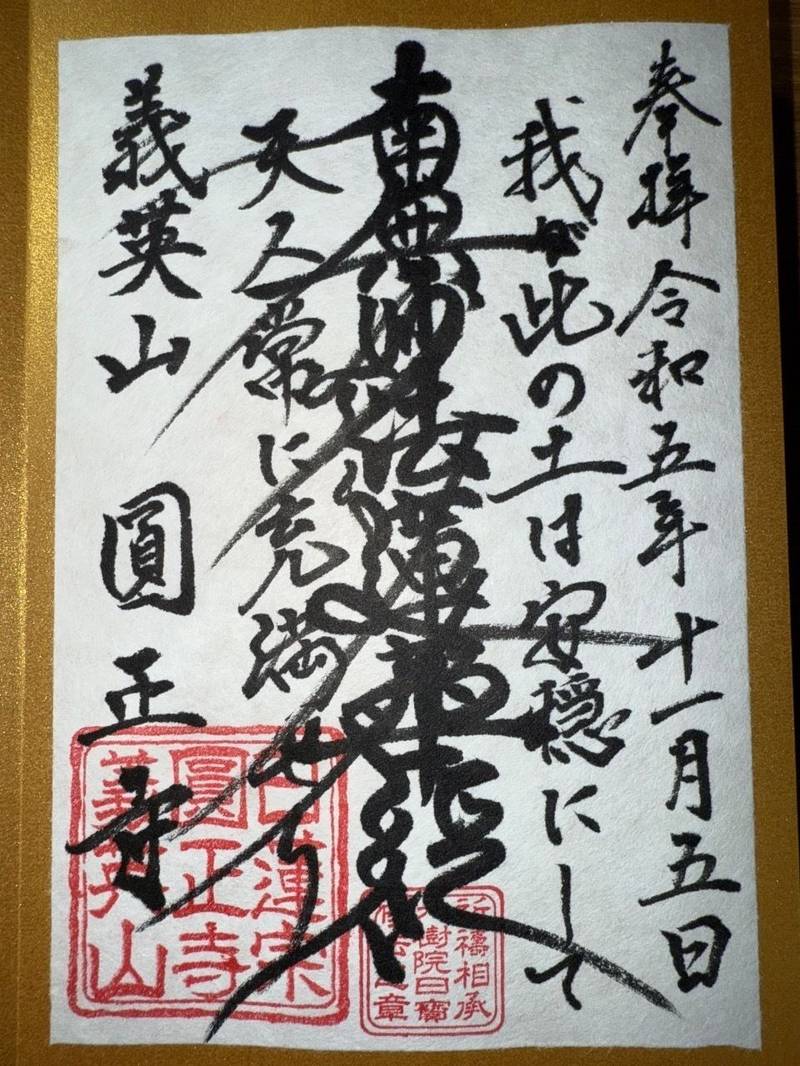 奉拝 令和五年十一月五日
我が此の土は安穏にして
南無妙法蓮華経
天人常に充満せり
義英山 圓正寺
日蓮宗
圓正寺
義英山
祈禱相承
樹院日寶
章